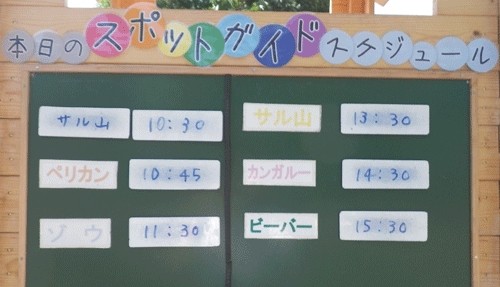 本日のスポットガイドスケジュール
サル山 10:30
ペリカン 10:45
ゾウ 11:30
サル山 13:30
カンガルー 14:30
ビーバー 15:30